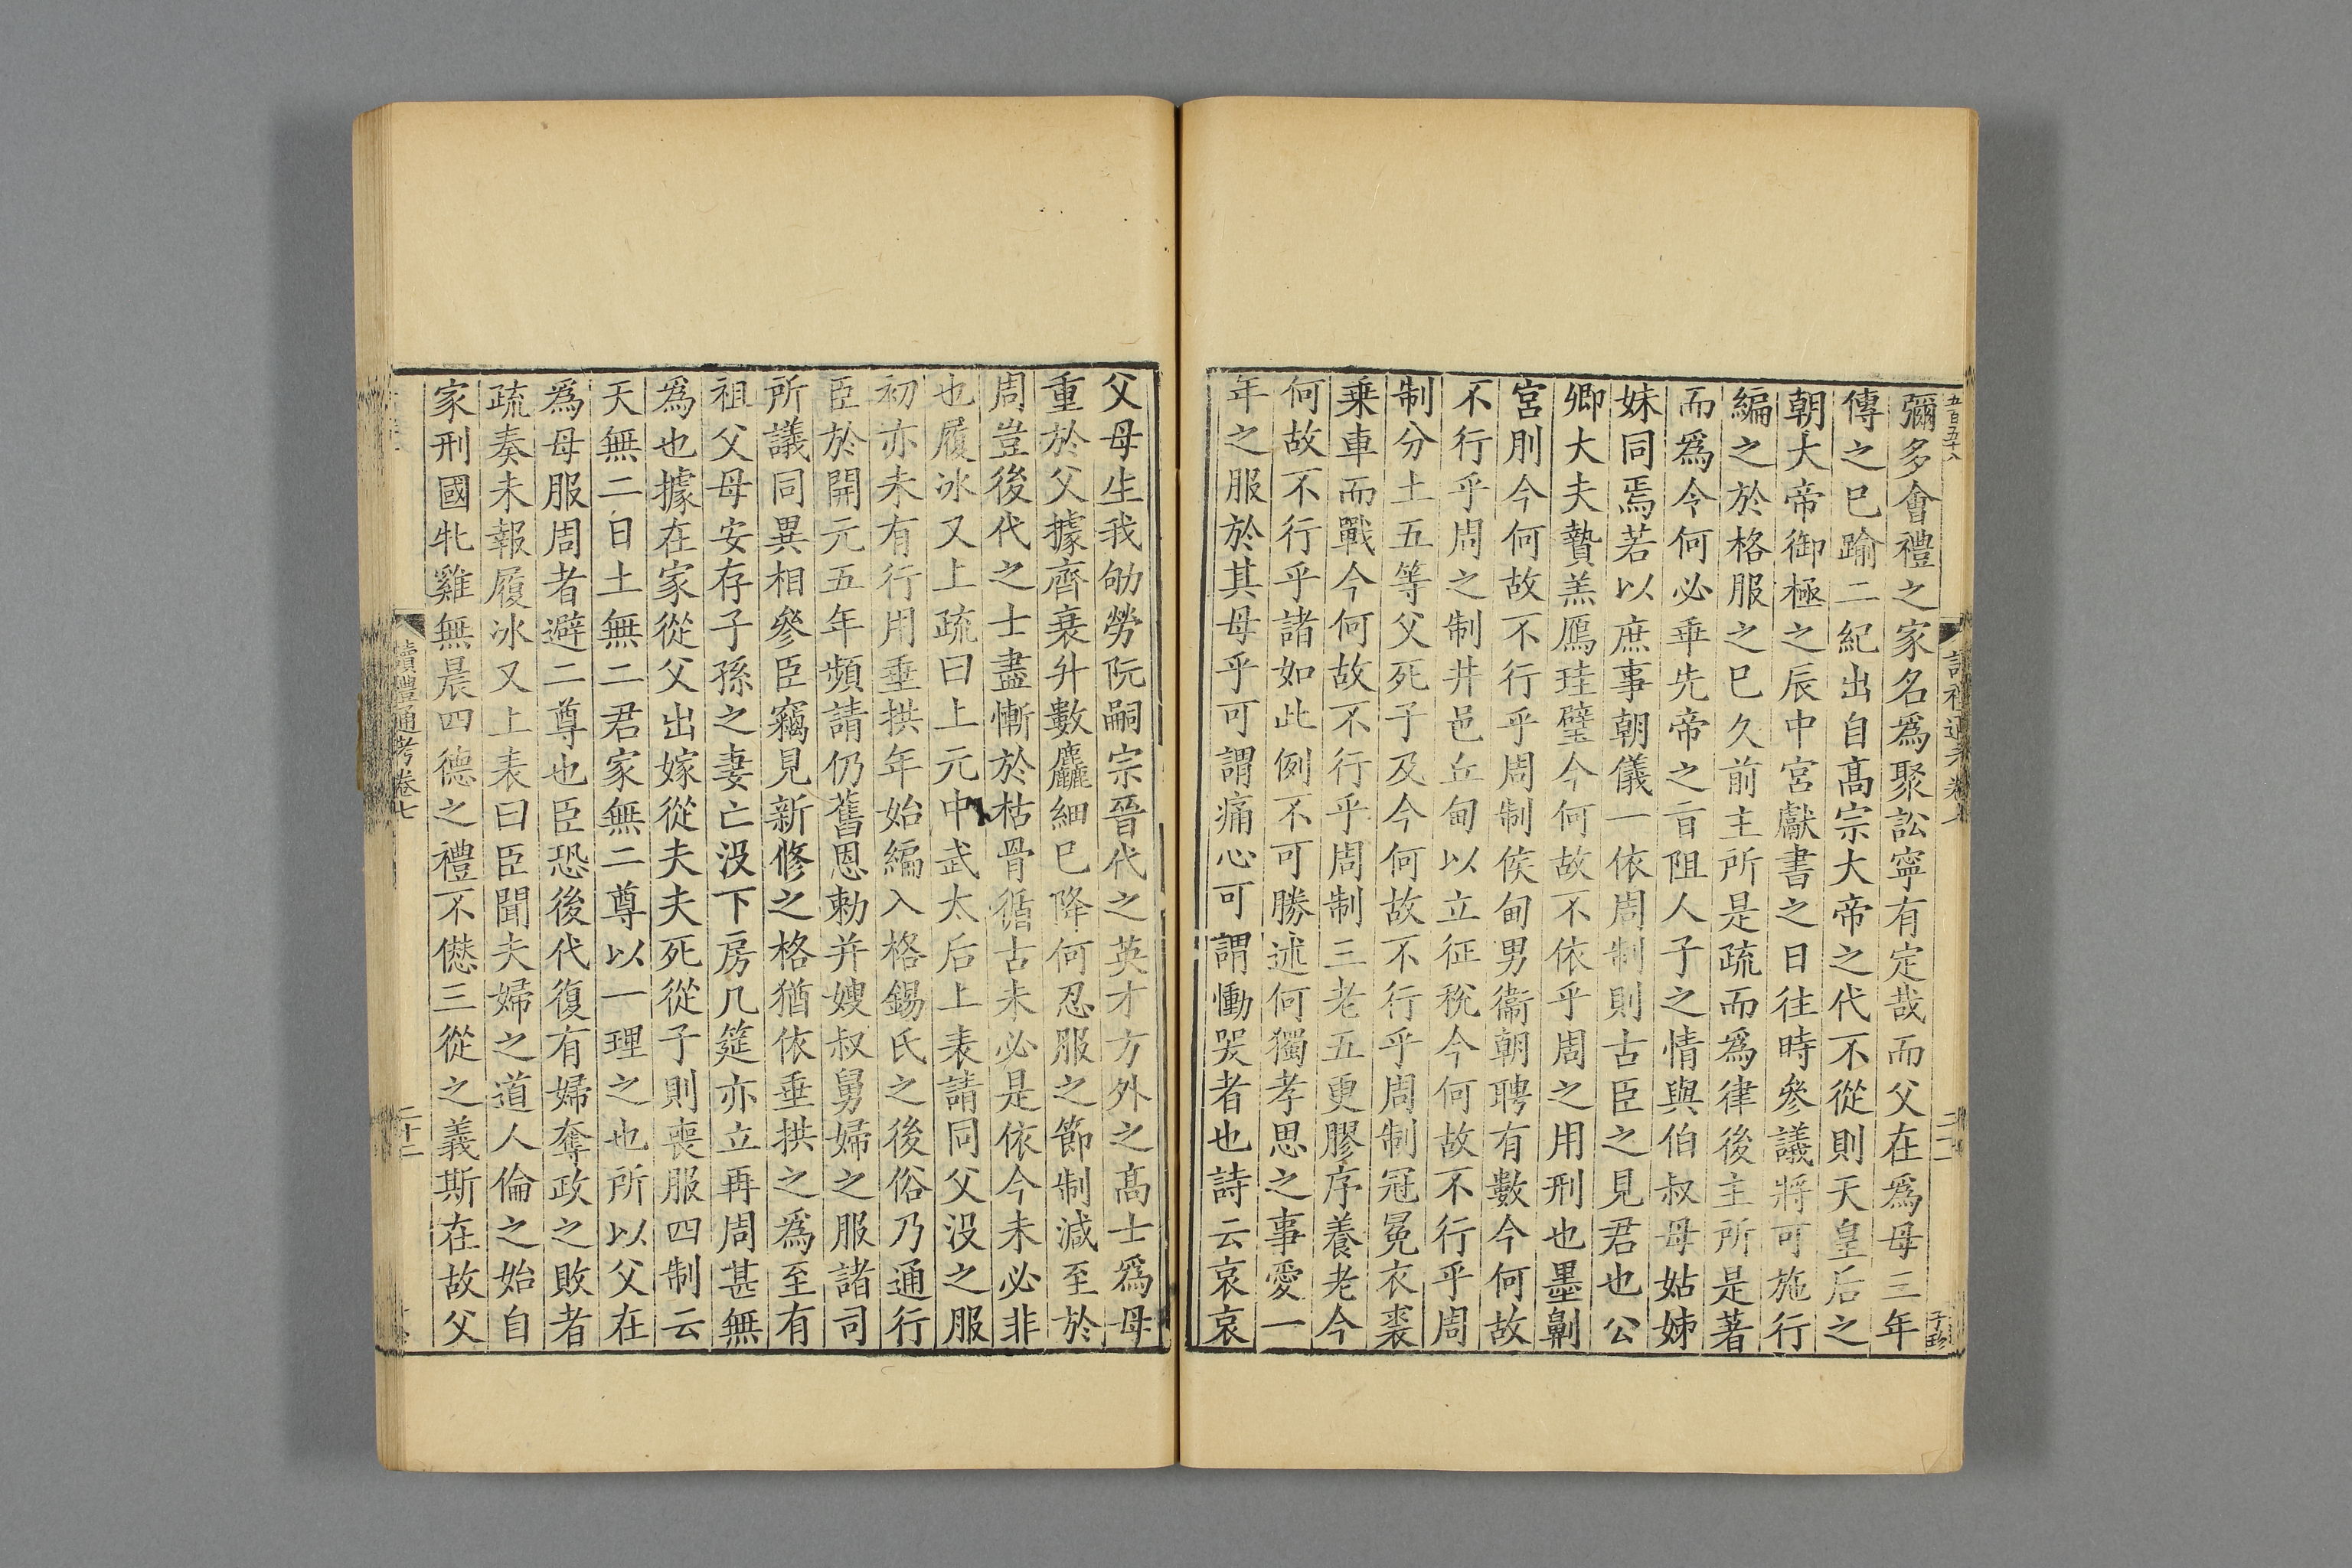 五百五十八
彌多會禮之家名爲聚訟寧有定哉而父在爲母三年
傳之巳踰二紀出自髙宗大帝之代不從則天皇后之
朝大帝御極之辰中宮獻書之日往時參議將可施行
編之於格服之巳久前主所是疏而爲律後主所是著
而爲令何必乖先帝之旨阻人子之情與伯叔母姑姊
妹同焉若以庶事朝儀一依周制則古臣之見君也公
卿大夫贄羔鴈珪璧今何故不依乎周之用刑也墨劓
宮刖今何故不行乎周制侯甸男衞朝聘有數今何故
不行乎周之制井邑丘甸以立征稅今何故不行乎周
制分土五等父死子及今何故不行乎周制冠冕衣裘
乗車而戰今何故不行乎周制三老五更膠序養老今
何故不行乎諸如此例不可勝述何獨孝思之事愛一
年之服於其母乎可謂痛心可謂慟哭者也詩云哀哀
父母生我劬勞阮嗣宗晉代之英才方外之髙士爲母
重於父據齊衰升數麤細巳降何忍服之節制減至於
周豈後代之士盡慚於枯骨循古未必是依今未必非
也履冰又上疏曰上元中武太后上表請同父没之服
初亦未有行用垂拱年始編入格錫氏之後俗乃通行
臣於開元五年頻請仍舊恩勅并嫂叔舅婦之服諸司
所議同異相參臣竊見新修之格猶依垂拱之爲至有
祖父母安存子孫之妻亡没下房几筵亦立再周甚無
爲也據在家從父出嫁從夫夫死從子則喪服四制云
天無二日土無二君家無二尊以一理之也所以父在
爲母服周者避二尊也臣恐後代復有婦奪政之敗者
疏奏未報履冰又上表曰臣聞夫婦之道人倫之始自
家刑國牝雞無晨四德之禮不愆三從之義斯在故父
讀禮通考卷七
二十二